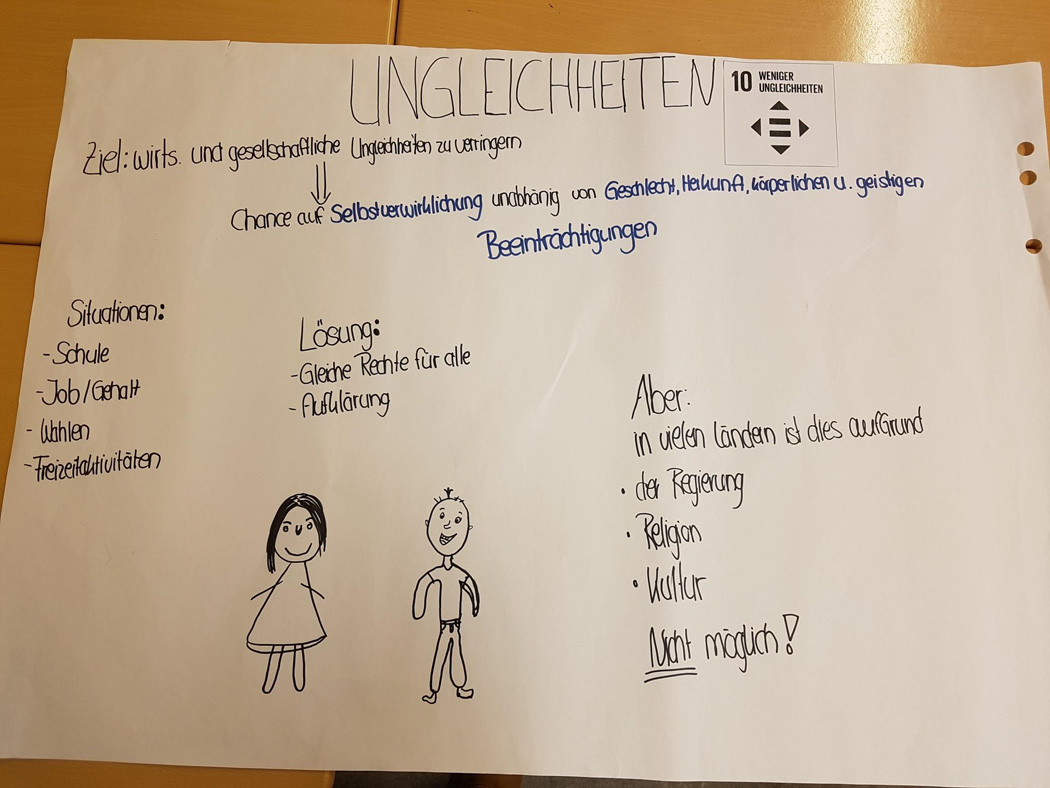 UNGLEICHHEITEN
10 WENIGER
UNGLEICHHEITEN
Ziel: wirts. und gesellschaftliche Ungleichheiten zu verringern
Chance auf Selbstverwirklichung unabhänig von Geschlecht, Herkunft, körperlichen u. geistigen
Beeinträchtigungen
Situationen:
- Schule
- Job/Gehalt
- Wahlen
- Freizeitaktivitäten
Lösung:
- Gleiche Rechte für alle
- Aufklärung
Aber:
in vielen Ländern ist dies aufGrund
• der Regierung
• Religion
• Kultur
Nicht möglich!